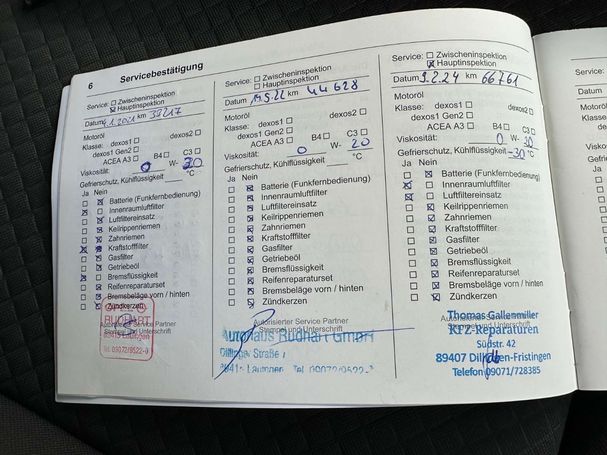 6 Servicebestätigung
Service: Zwischeninspektion
Hauptinspektion
Datum 4.1.2021 km 38217
Motoröl
Klasse: dexos1 dexos2
dexos1 Gen2
ACEA A3 B4 C3
Viskosität: 0 W- 30
Gefrierschutz, Kühlflüssigkeit °C
Ja Nein
Batterie (Funkfernbedienung)
Innenraumluftfilter
Luftfiltereinsatz
Keilrippenriemen
Zahnriemen
Kraftstofffilter
Gasfilter
Getriebeöl
Bremsflüssigkeit
Reifenreparaturset
Bremsbeläge vorn / hinten
Zündkerzen
Autorisierter Service Partner
Stempel und Unterschrift
RUDHART
89415 Lauingen
Tel. 09072/9522-0
Service: Zwischeninspektion
Hauptinspektion
Datum km 44628
Motoröl
Klasse: dexos1 dexos2
dexos1 Gen2
ACEA A3 B4 C3
Viskosität: 0 W- 20
Gefrierschutz, Kühlflüssigkeit °C
Ja Nein
Batterie (Funkfernbedienung)
Innenraumluftfilter
Luftfiltereinsatz
Keilrippenriemen
Zahnriemen
Kraftstofffilter
Gasfilter
Getriebeöl
Bremsflüssigkeit
Reifenreparaturset
Bremsbeläge vorn / hinten
Zündkerzen
Autorisierter Service Partner
Stempel und Unterschrift
Autohaus Rudhart GmbH
Dillinger Straße
Lauingen Tel. 09072/9522-
Service: Zwischeninspektion
Hauptinspektion
Datum 9.2.24 km 66761
Motoröl
Klasse: dexos1 dexos2
dexos1 Gen2
ACEA A3 B4 C3
Viskosität: 0 W- 30
Gefrierschutz, Kühlflüssigkeit -30 °C
Ja Nein
Batterie (Funkfernbedienung)
Innenraumluftfilter
Luftfiltereinsatz
Keilrippenriemen
Zahnriemen
Kraftstofffilter
Gasfilter
Getriebeöl
Bremsflüssigkeit
Reifenreparaturset
Bremsbeläge vorn / hinten
Zündkerzen
Autorisierter Service Partner
Stempel und Unterschrift
Thomas Gallenmiller
KFZ-Reparaturen
Südstr. 42
89407 Dillingen-Fristingen
Telefon 09071/728385